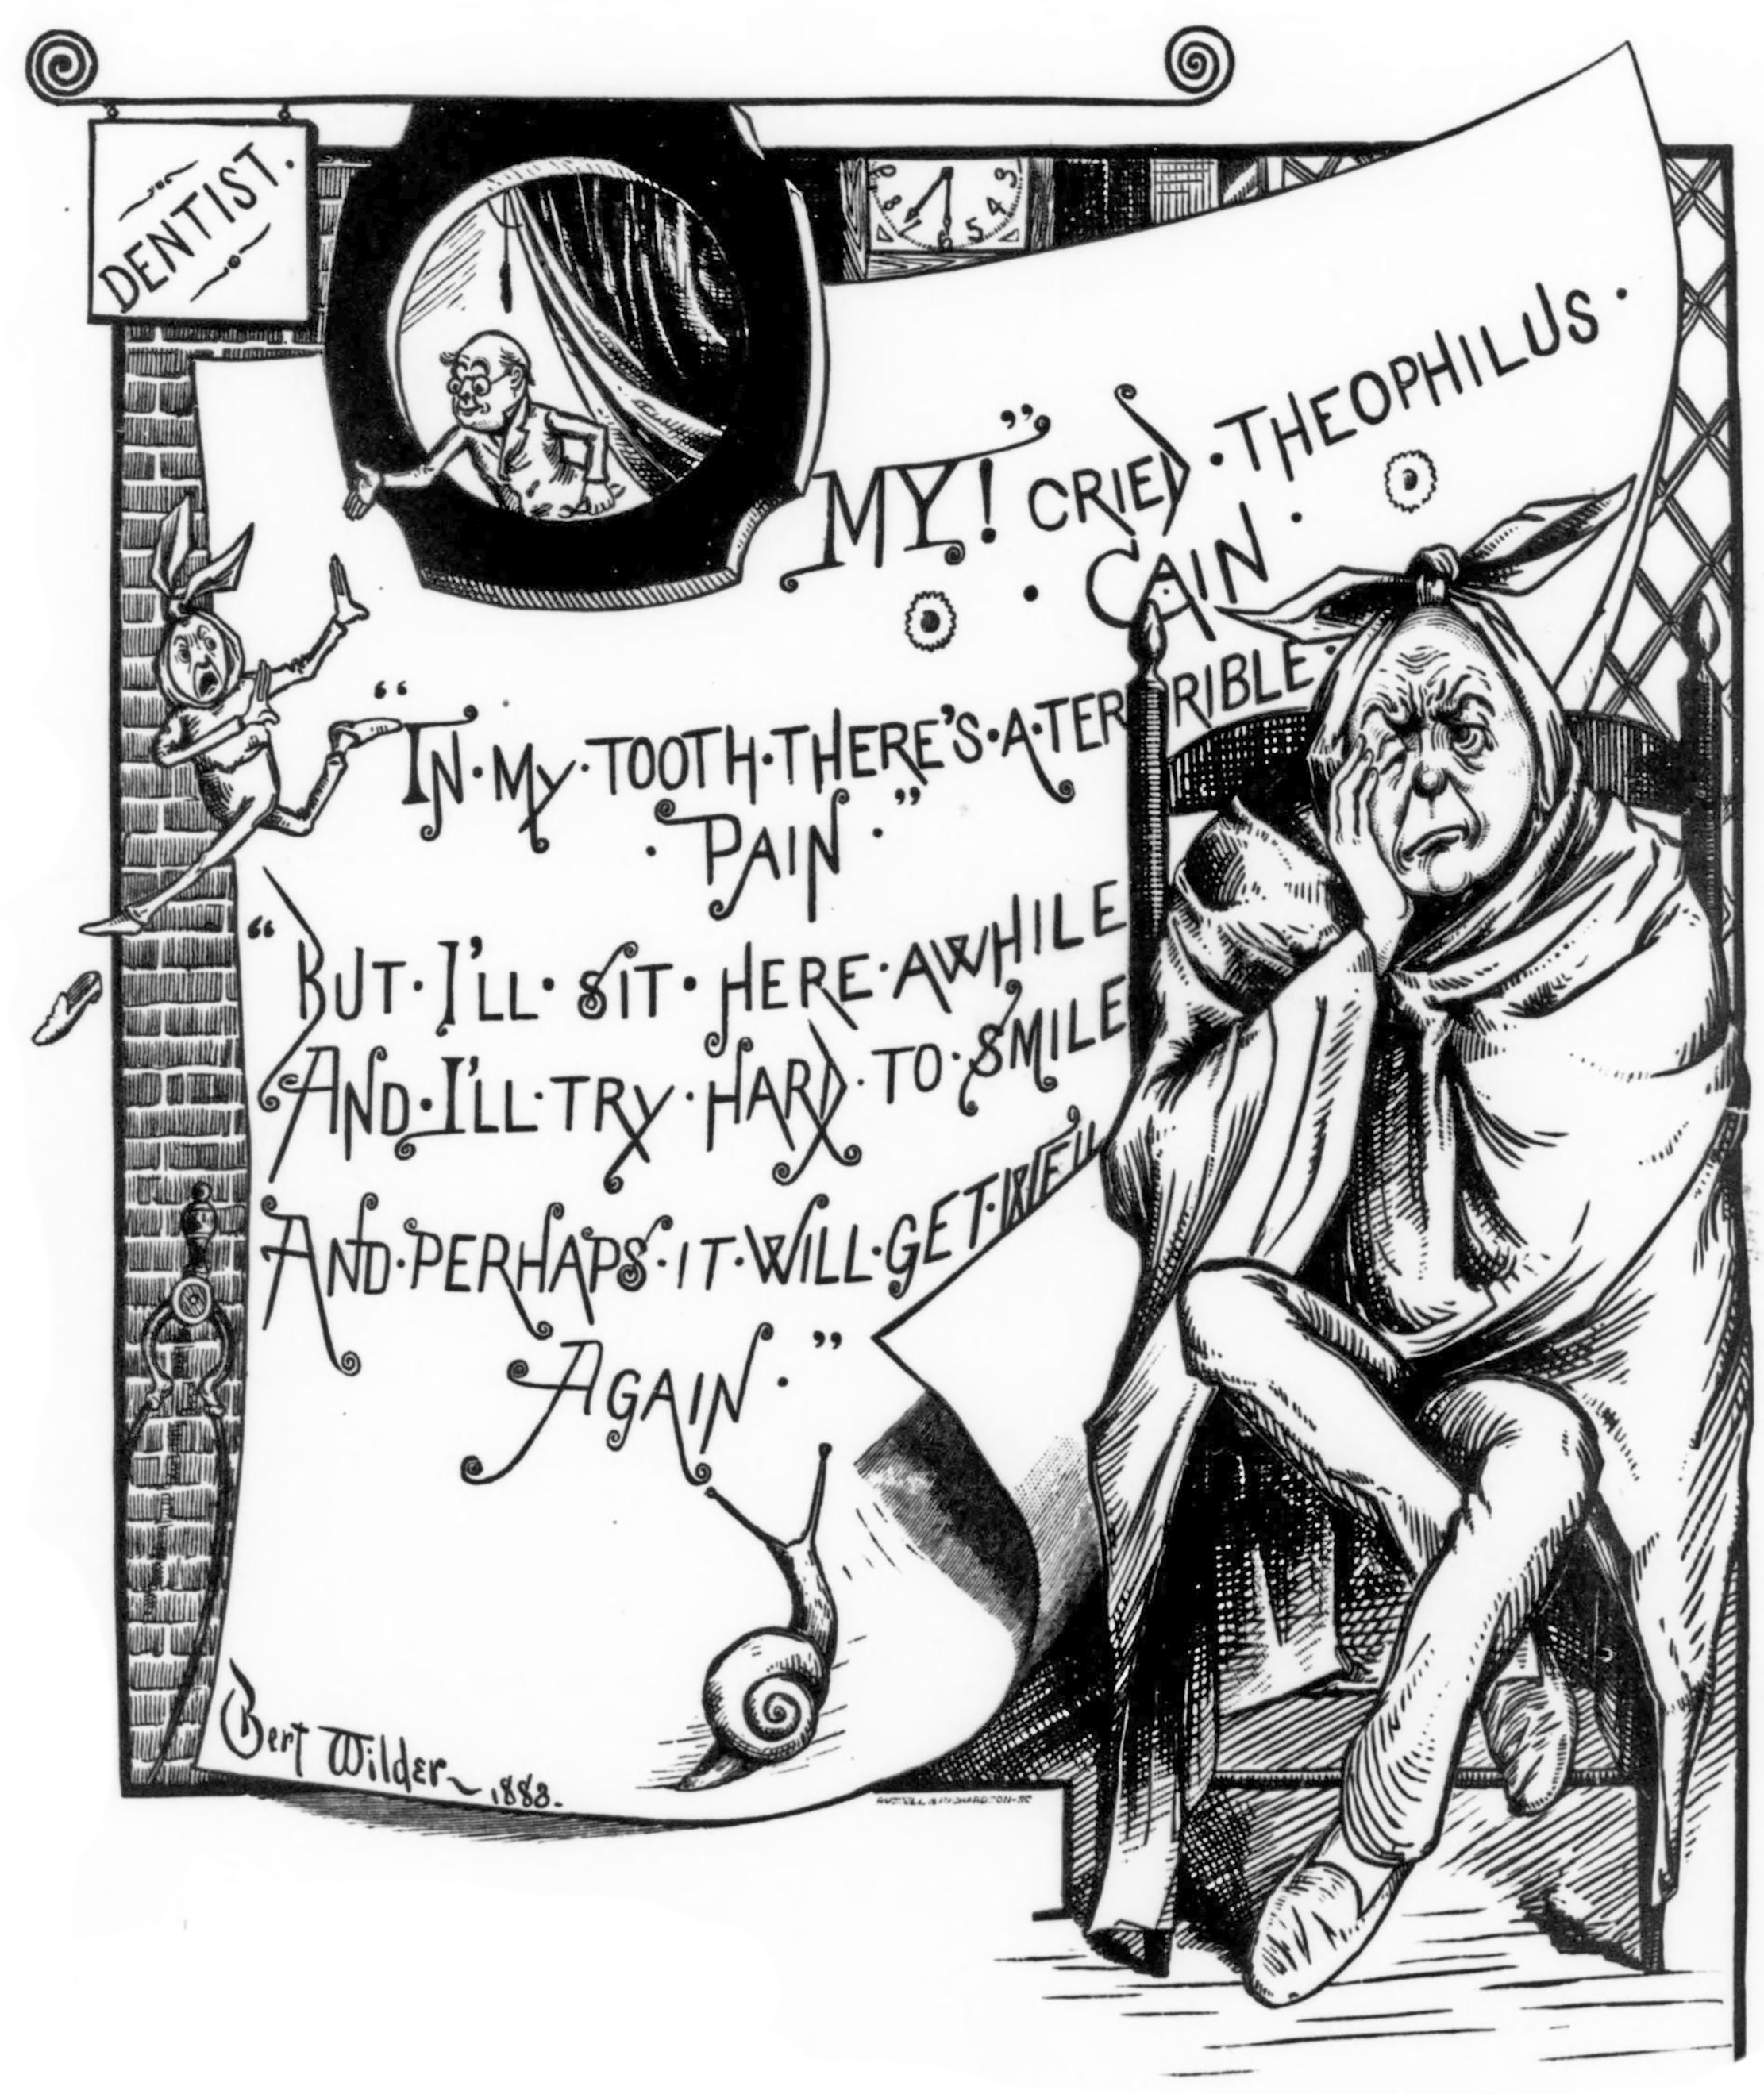 DENTIST.
9 8 7 6 5 4 3
”MY! CRIED · THEOPHILUS ·
· CAIN ·
“IN · MY · TOOTH · THERE'S · A · TERRIBLE ·
· PAIN · ”
“BUT · I'LL · SIT · HERE · AWHILE
AND · I'LL · TRY · HARD · TO · SMILE
AND · PERHAPS · IT · WILL · GET · WELL
AGAIN · ”
Bert Wilder~ 1883.
RUSSELL & RICHARDSON-SC